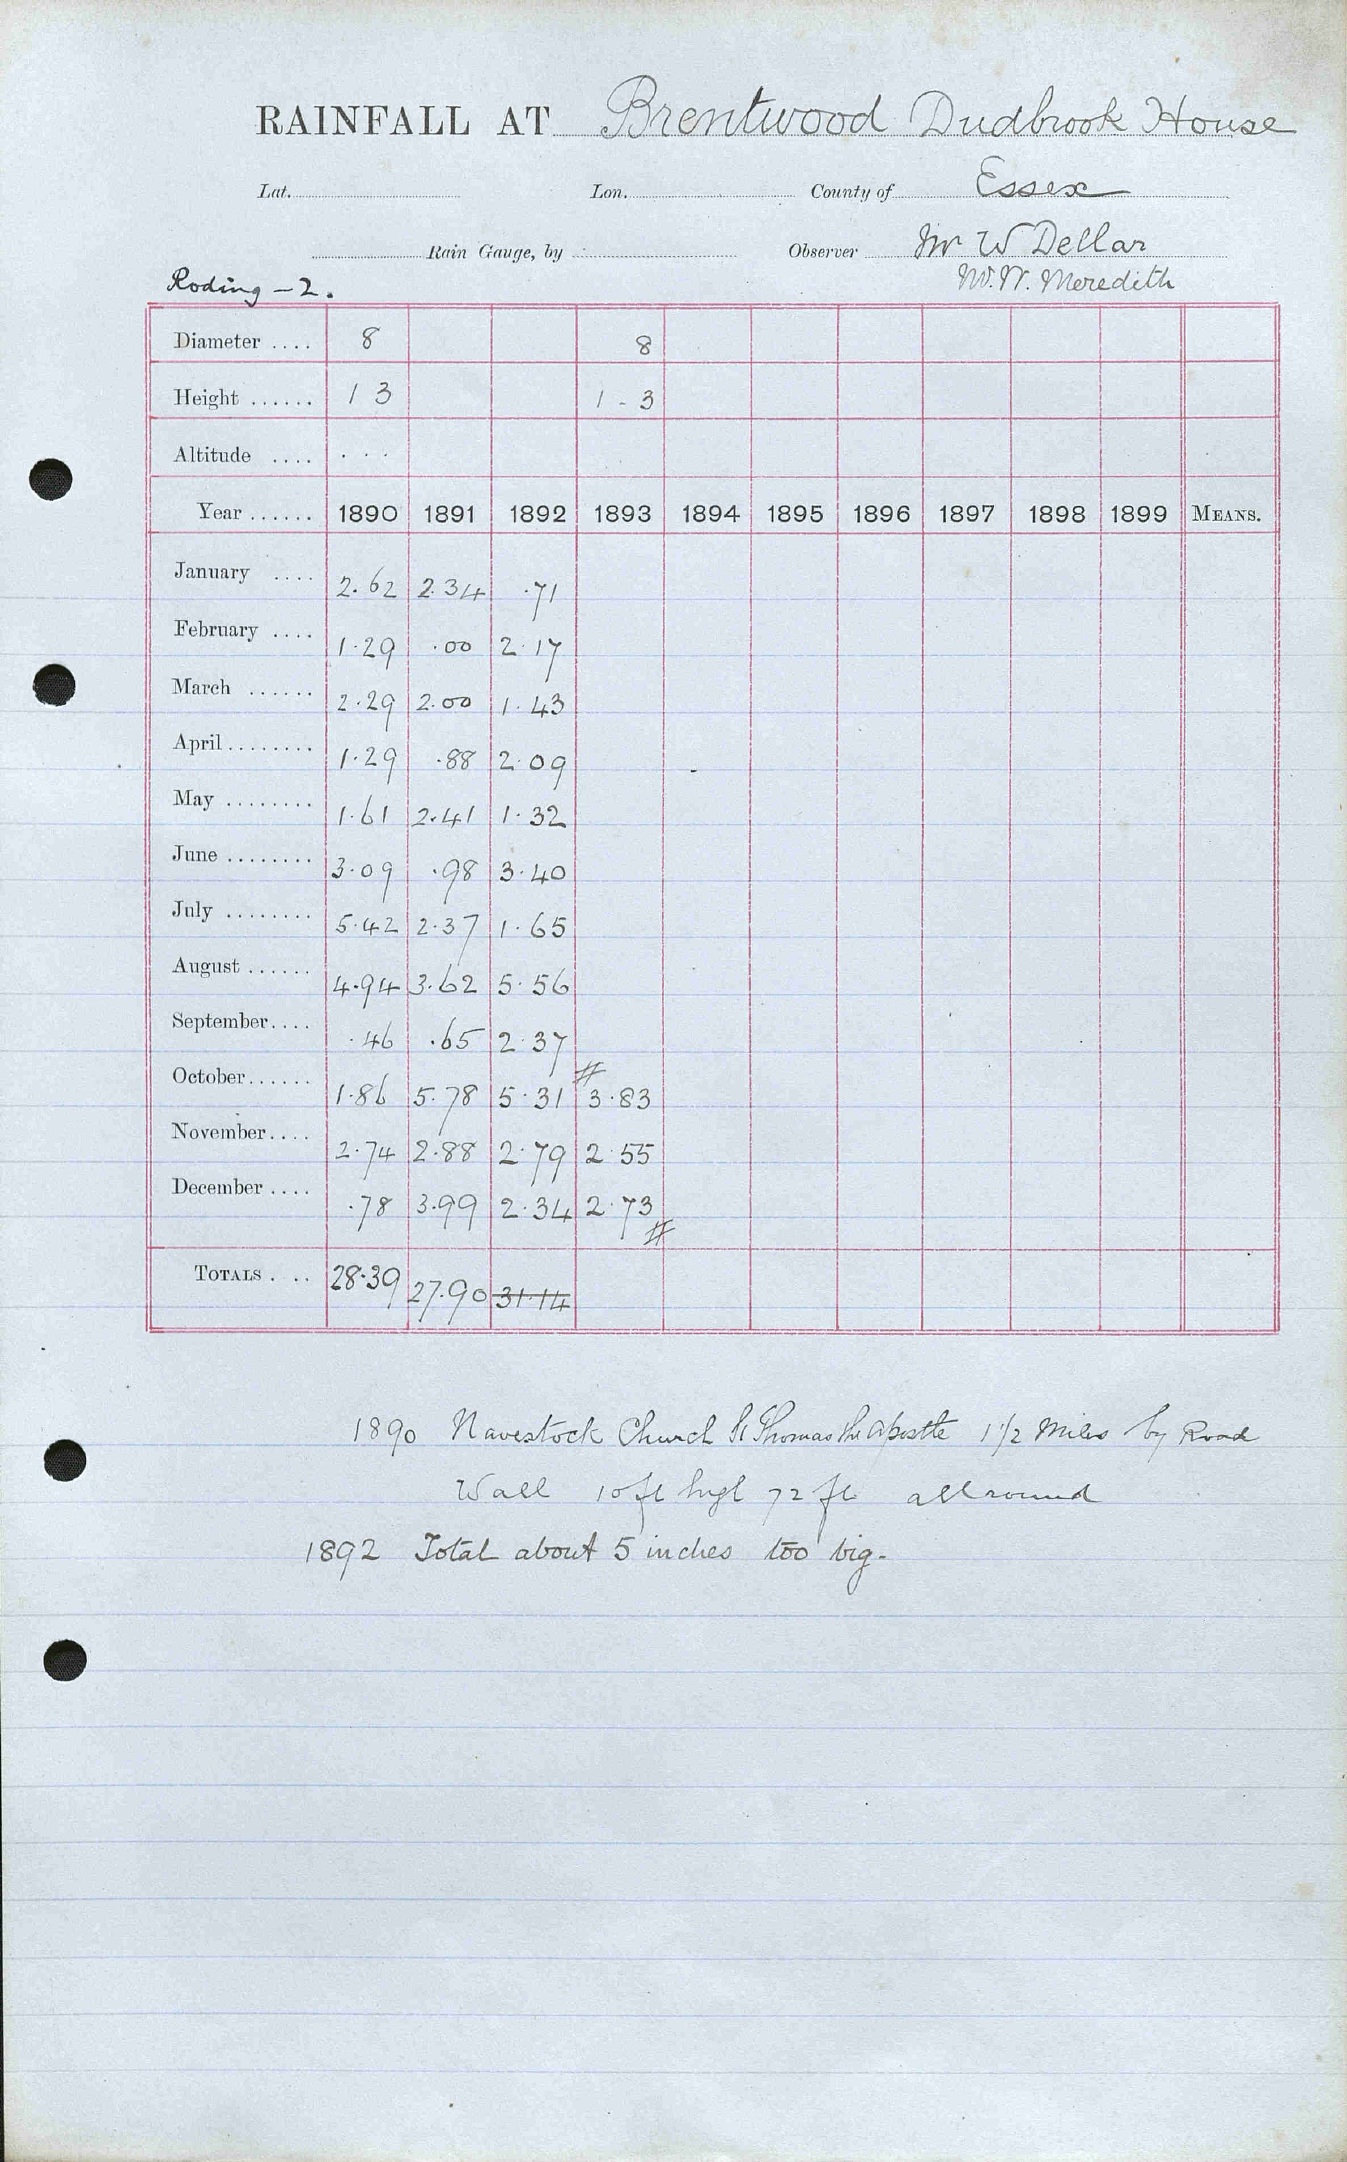 RAINFALL AT Brentwood Dudbrook House
Lat. Lon. County of Essex
Rain Gauge, by Observer Mr W Dellar
W. Meredith
Roding - 2.
Diameter .... 8 8
Height ...... 1 3 1 - 3
Altitude .... . . .
Year ...... 1890 1891 1892 1893 1894 1895 1896 1897 1898 1899 MEANS.
January .... 2.62 2.34 .71
February .... 1.29 .00 2.17
March ...... 2.29 2.00 1.43
April ........ 1.29 .88 2.09
May ........ 1.61 2.41 1.32
June ........ 3.09 .98 3.40
July ........ 5.42 2.37 1.65
August ...... 4.94 3.62 5.56
September .... .46 .65 2.37
October ...... 1.86 5.78 5.31 # 3.83
November .... 2.74 2.88 2.79 2.55
December .... .78 3.99 2.34 2.73 #
TOTALS . .. 28.39 27.90 31.14
1890 Navestock Church St Thomas the Apostle 1 1/2 Miles by Road
Wall 10 ft high 72 ft all round
1892 Total about 5 inches too big.